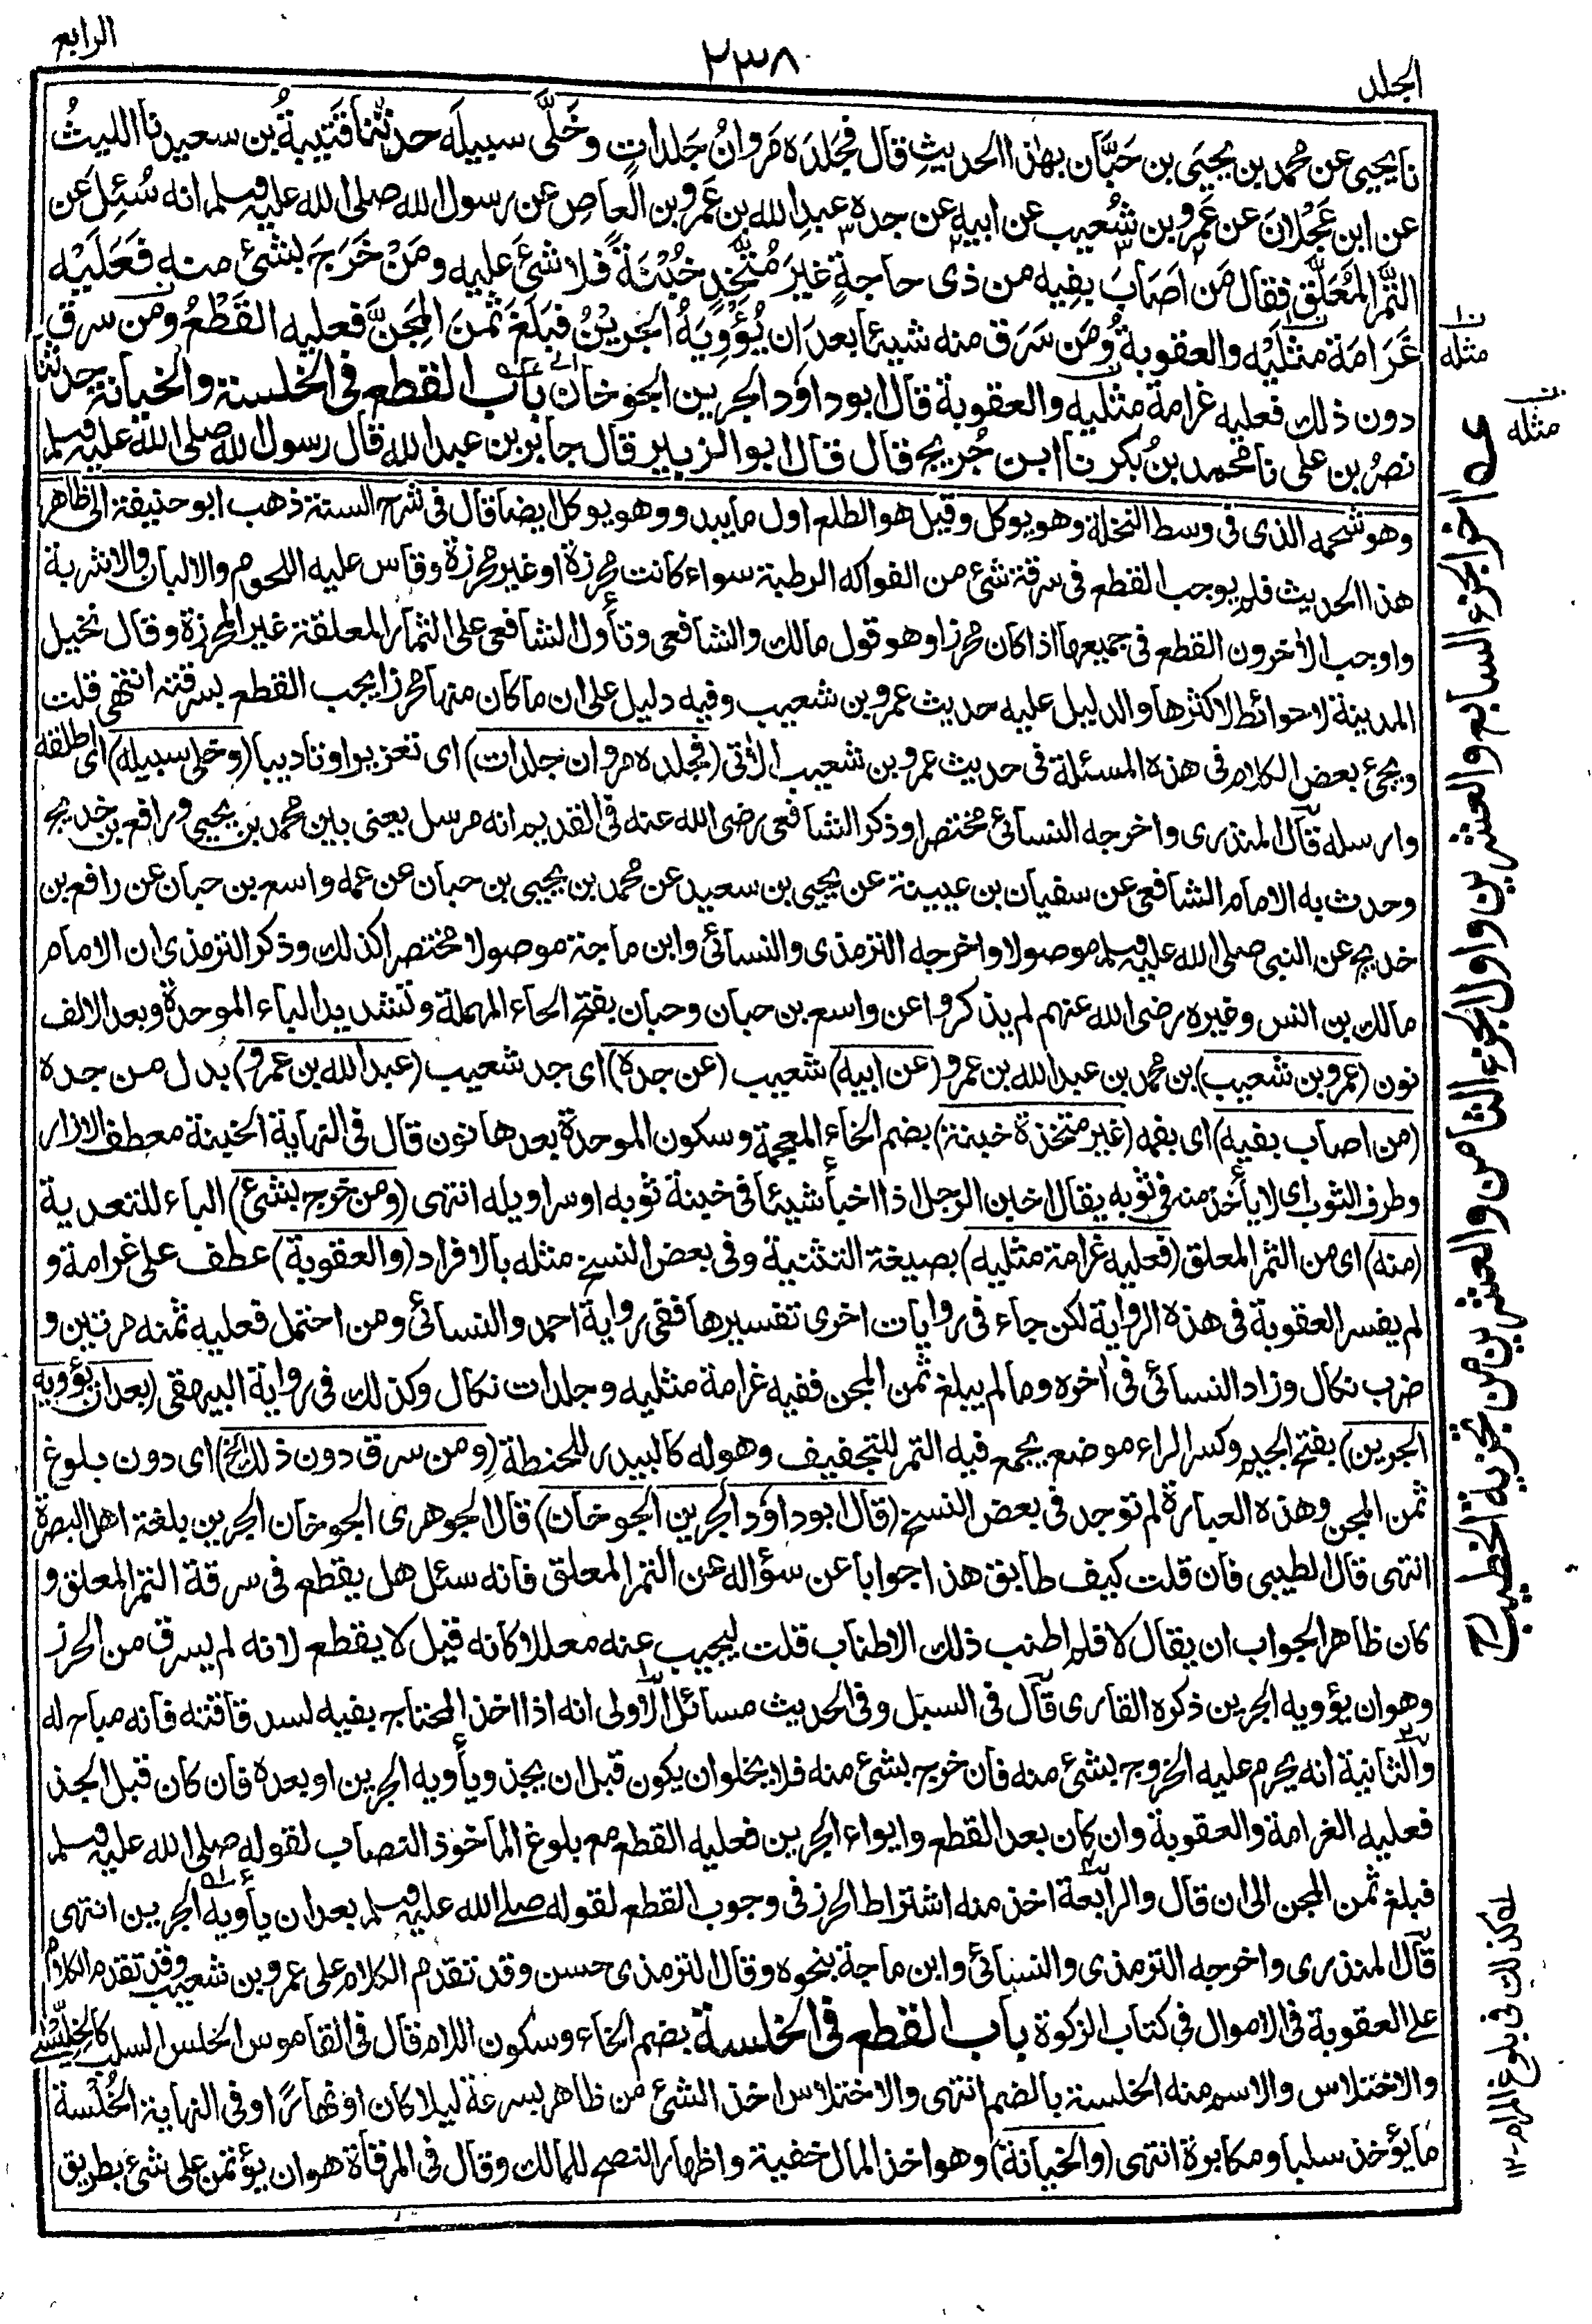 الجلد
٢٣٨
الرابع
نا يحيى عن محمد بن يحيى بن حَبَّان بهذا الحديثِ قال فجلدَه مَروانُ جَلداتٍ وخَلَّى سبيلَه حدثنا قُتيبةُ بن سعيد نا الليثُ
عن ابن عَجْلانَ عن عَمرو بن شُعيب عن ابيه عن جده عبدِ الله بن عَمرو بن العاصِ عن رسول الله صلى الله عليه وسلم انه سُئِلَ عن
الثَّمَر المُعَلَّق فقال مَن اَصَابَ بفيه من ذى حاجةٍ غيرَ مُتَّخِذٍ خُبْنَةً فلا شئَ عليه ومَنْ خَرَجَ بشئ منه فعَلَيْه
غَرَامَة مِثْلَيْه والعقوبةُ ومَن سَرَق منه شيئا بعد ان يُؤْوِيَهُ الجَرِيْنُ فبَلَغَ ثَمنَ المِجَنِّ فعليه القَطْعُ ومَن سرق
دون ذلك فعليه غرامة مثليه والعقوبة قال ابو داوٗد الجرين الجوخان باب القطع فى الخلسة والخيانة حدثنا
نصرُ بن على نا محمد بنُ بكر نا ابن جُريج قال قال ابو الزبير قال جابر بن عبد الله قال رسول الله صلى الله عليه وسلم
وهو شحمه الذى فى وسط النخلة وهو يوكل وقيل هو الطلع اول ما يبدو وهو يوكل ايضا قال فى شرح السنة ذهب ابو حنيفة الى ظاهر
هذا الحديث فلم يوجب القطع فى سرقة شئ من الفواكه الرطبة سواء كانت محرزة او غير محرزة وقاس عليه اللحوم والالبان والاشربة
واوجب الاٰخرون القطع فى جميعها اذا كان محرزا وهو قول مالك والشافعى وتأول الشافعى على الثمار المعلقة غير المحرزة وقال نخيل
المدينة لا حوائط لاكثرها والدليل عليه حديث عمرو بن شعيب وفيه دليل على ان ما كان منها محرزا يجب القطع بسرقته انتهى قلت
ويجئ بعض الكلام فى هذه المسئلة فى حديث عمرو بن شعيب الاٰتى (فجلده مروان جلدات) اى تعزيرا وتاديبا (وخلى سبيله) اى اطلقه
وارسله قال المنذرى واخرجه النسائى مختصرا وذكر الشافعى رضى الله عنه فى القديم انه مرسل يعنى بين محمد بن يحيى ورافع بن خديج
وحدث به الامام الشافعى عن سفيان بن عيينة عن يحيى بن سعيد عن محمد بن يحيى بن حبان عن عمه واسع بن حبان عن رافع بن
خديج عن النبى صلى الله عليه وسلم موصولا واخرجه الترمذى والنسائى وابن ماجة موصولا مختصرا كذلك وذكر الترمذى ان الامام
مالك بن انس وغيره رضى الله عنهم لم يذكروا عن واسع بن حبان وحبان بفتح الحاء المهملة وتشديد الباء الموحدة وبعد الالف
نون (عمرو بن شعيب) بن محمد بن عبد الله بن عمرو (عن ابيه) شعيب (عن جده) اى جد شعيب (عبد الله بن عمرو) بدل من جده
(من اصاب بفيه) اى بفمه (غير متخذة خبنة) بضم الخاء المعجمة وسكون الموحدة بعدها نون قال فى النهاية الخبنة معطف الازار
وطرف الثوب اى لا يأخذ منه فى ثوبه يقال اخبن الرجل اذا اخبأ شيئا فى خبنة ثوبه او سراويله انتهى (ومن خرج بشئ) الباء للتعدية
(منه) اى من الثمر المعلق (فعليه غرامة مثليه) بصيغة التثنية وفى بعض النسخ مثله بالافراد (والعقوبة) عطف على غرامة و
لم يفسر العقوبة فى هذه الرواية لكن جاء فى روايات اخرى تفسيرها ففى رواية احمد والنسائى ومن احتمل فعليه ثمنه مرتين و
ضرب نكال وزاد النسائى فى اٰخره وما لم يبلغ ثمن المجن ففيه غرامة مثليه وجلدات نكال وكذلك فى رواية البيهقى (بعد ان يؤويه
الجرين) بفتح الجيم وكسر الراء موضع يجمع فيه التمر للتجفيف وهو له كالبيدر للحنطة (ومن سرق دون ذلك الخ) اى دون بلوغ
ثمن المجن وهذه العبارة لم توجد فى بعض النسخ (قال ابو داوٗد الجرين الجوخان) قال الجوهرى الجوخان الجرين بلغة اهل البصرة
انتهى قال الطيبى فان قلت كيف طابق هذا جوابا عن سؤاله عن التمر المعلق فانه سئل هل يقطع فى سرقة التمر المعلق و
كان ظاهر الجواب ان يقال لا فلم اطنب ذلك الاطناب قلت ليجيب عنه معللا كانه قيل لا يقطع لانه لم يسرق من الحرز
وهو ان يؤويه الجرين ذكره القارى قال فى السبل وفى الحديث مسائل الاولى انه اذا اخذ المحتاج بفيه لسد فاقته فانه مباح له
والثانية انه يحرم عليه الخروج بشئ منه فان خرج بشئ منه فلا يخلو ان يكون قبل ان يجذ ويأويه الجرين او بعده فان كان قبل الجذ
فعليه الغرامة والعقوبة وان كان بعد القطع وايواء الجرين فعليه القطع مع بلوغ الماخوذ النصاب لقوله صلى الله عليه وسلم
فبلغ ثمن المجن الى ان قال والرابعة اخذ منه اشتراط الحرز فى وجوب القطع لقوله صلى الله عليه وسلم بعد ان يأويه الجرين انتهى
قال المنذرى واخرجه الترمذى والنسائى وابن ماجة بنحوه وقال الترمذى حسن وقد تقدم الكلام على عمرو بن شعيب وقد تقدم الكلام
على العقوبة فى الاموال فى كتاب الزكوة باب القطع فى الخلسة بضم الخاء وسكون اللام قال فى القاموس الخلس السلب كالخليسى
والاختلاس والاسم منه الخلسة بالضم انتهى والاختلاس اخذ الشئ من ظاهر بسرعة ليلا كان او نهارًا وفى النهاية الخُلْسة
ما يؤخذ سلبا ومكابرة انتهى (والخيانة) وهو اخذ المال خفية واظهار النصح للمالك وقال فى المرقاة هو ان يؤتمن على شئ بطريق
ن
مثله
ن
مثله
اٰخر الجزء السابع والعشرين واول الجزء الثامن والعشرين من تجزية الخطيب
كذلك فى بلوغ المرام ١٢